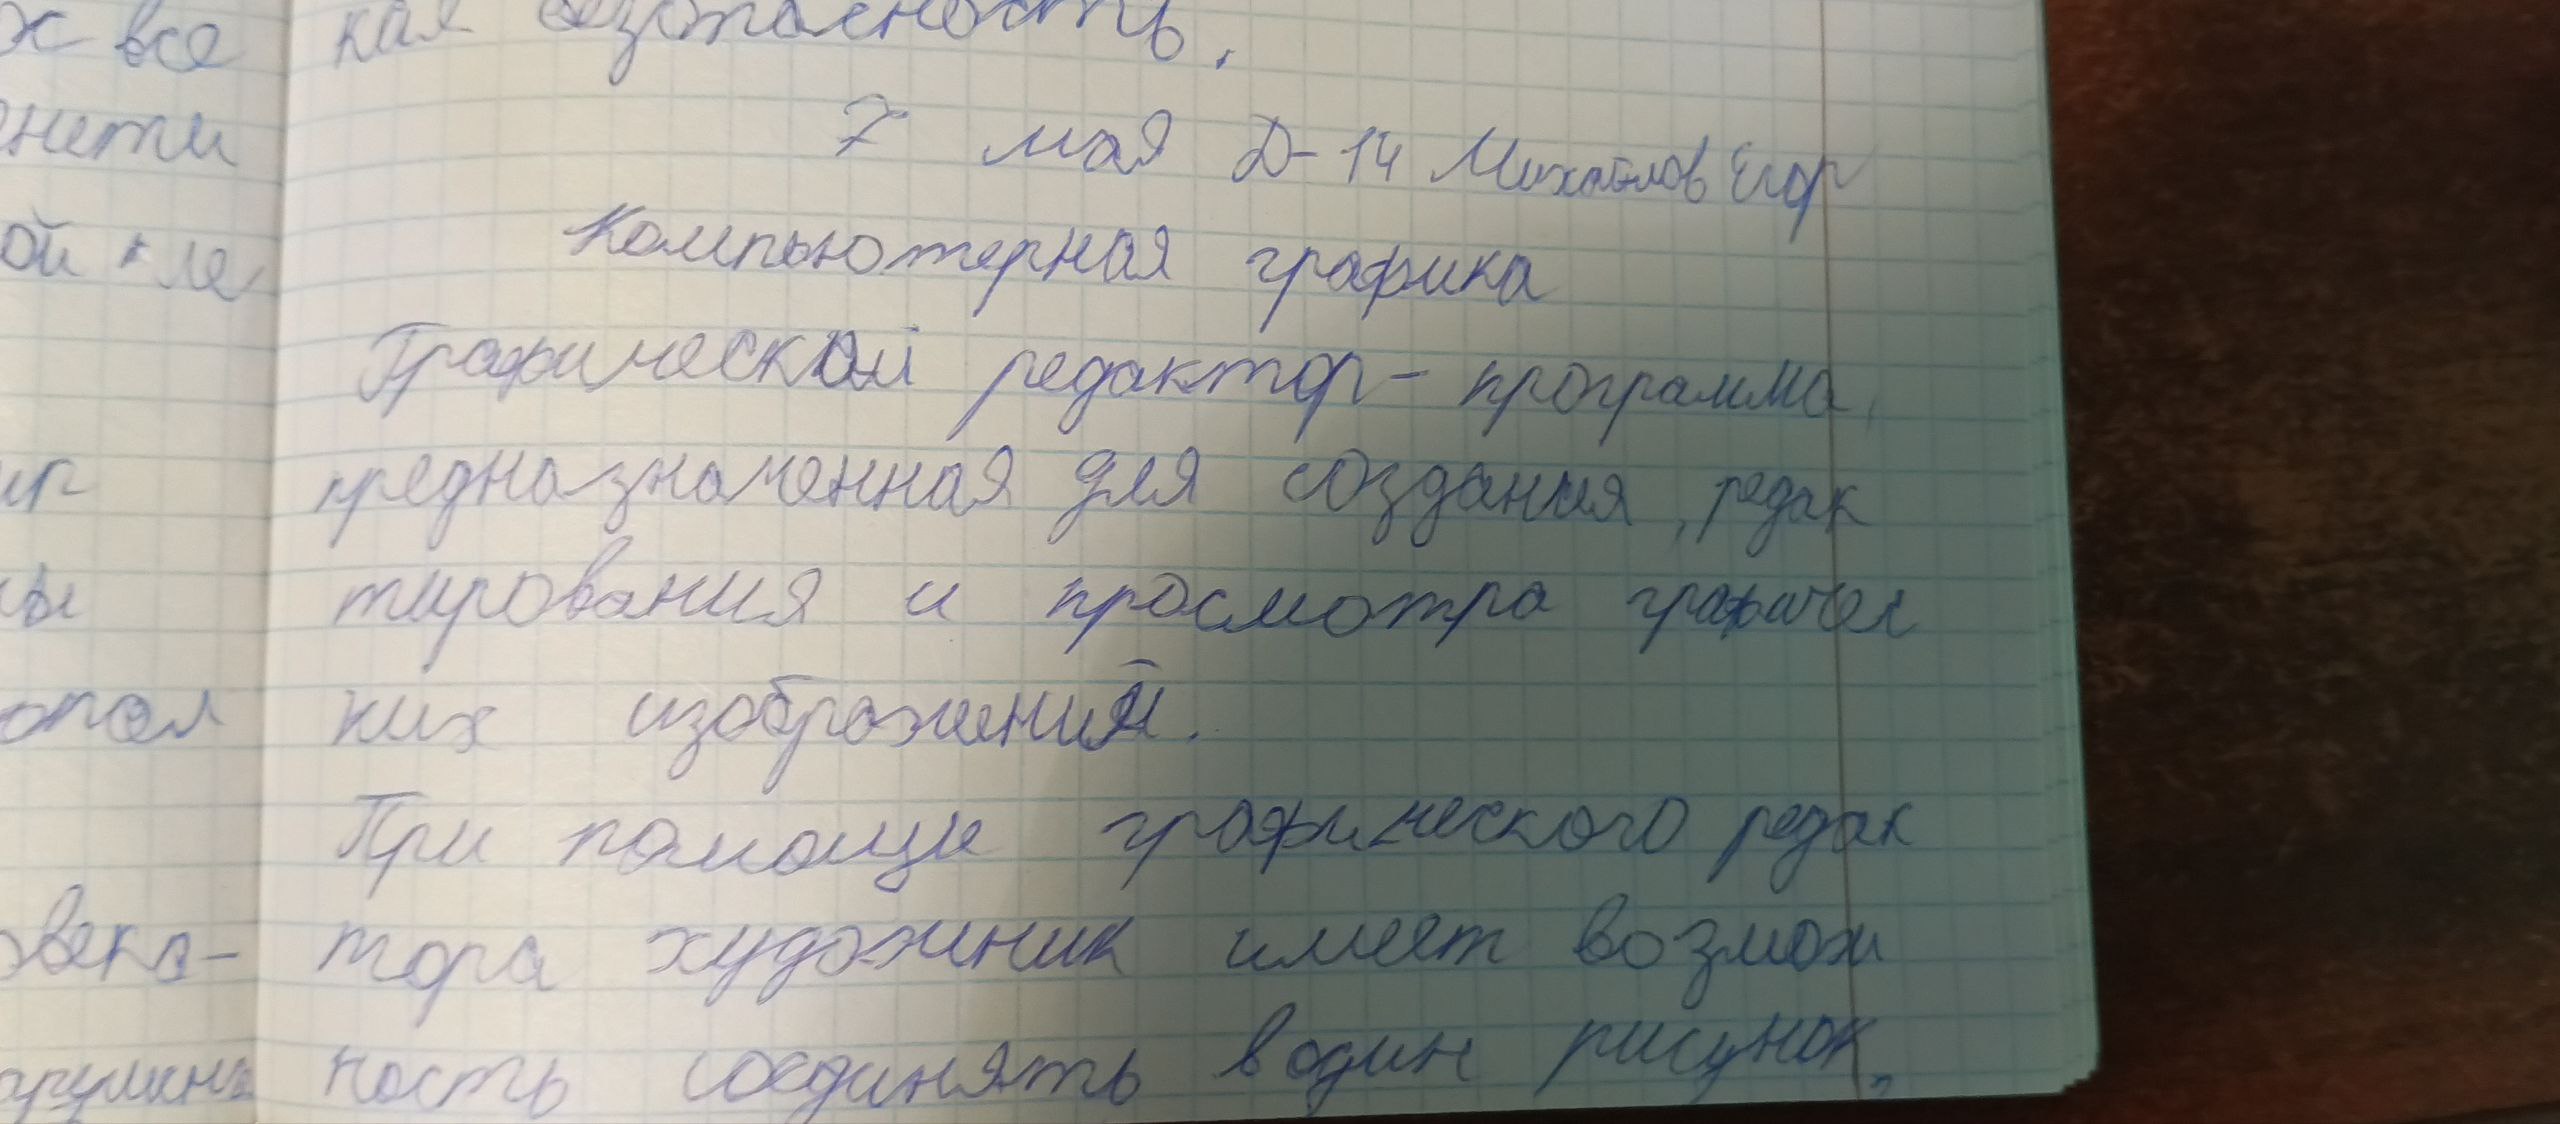 х все
кая безопасность.
7 мая Д-14 Михайлов Егор
Компьютерная графика
Графический редактор - программа,
предназначенная для создания, редак
тирования и просмотра графичес
ких изображений.
При помощи графического редак
тора художник имеет возмож
ность соединять в один рисунок,